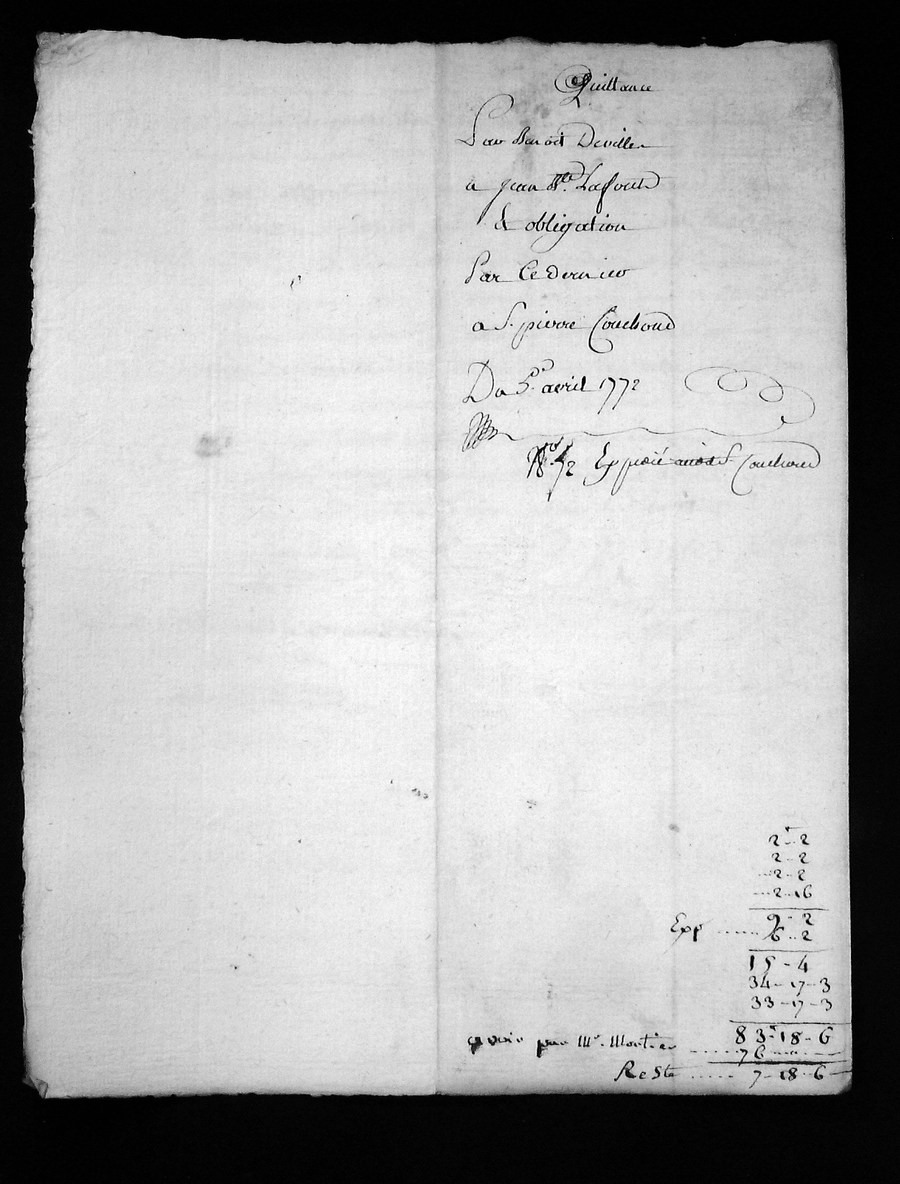 Quittance
Par Benoit Deville
a Jean Bte. Lafond
& obligation
Par Ce dernier
a Sr. pierre Couchoud
Du 5e. avril 1772
Expedié S. Couchoud
2 - 2
2 - 2
2 - 2
2 - 16
9 - 2
Exp ...... 6 - 2
15 - 4
34 - 17 - 3
33 - 17 - 3
83 - 18 - 6
par Mr. Montier ...... 76
Reste ...... 7 - 18 - 6